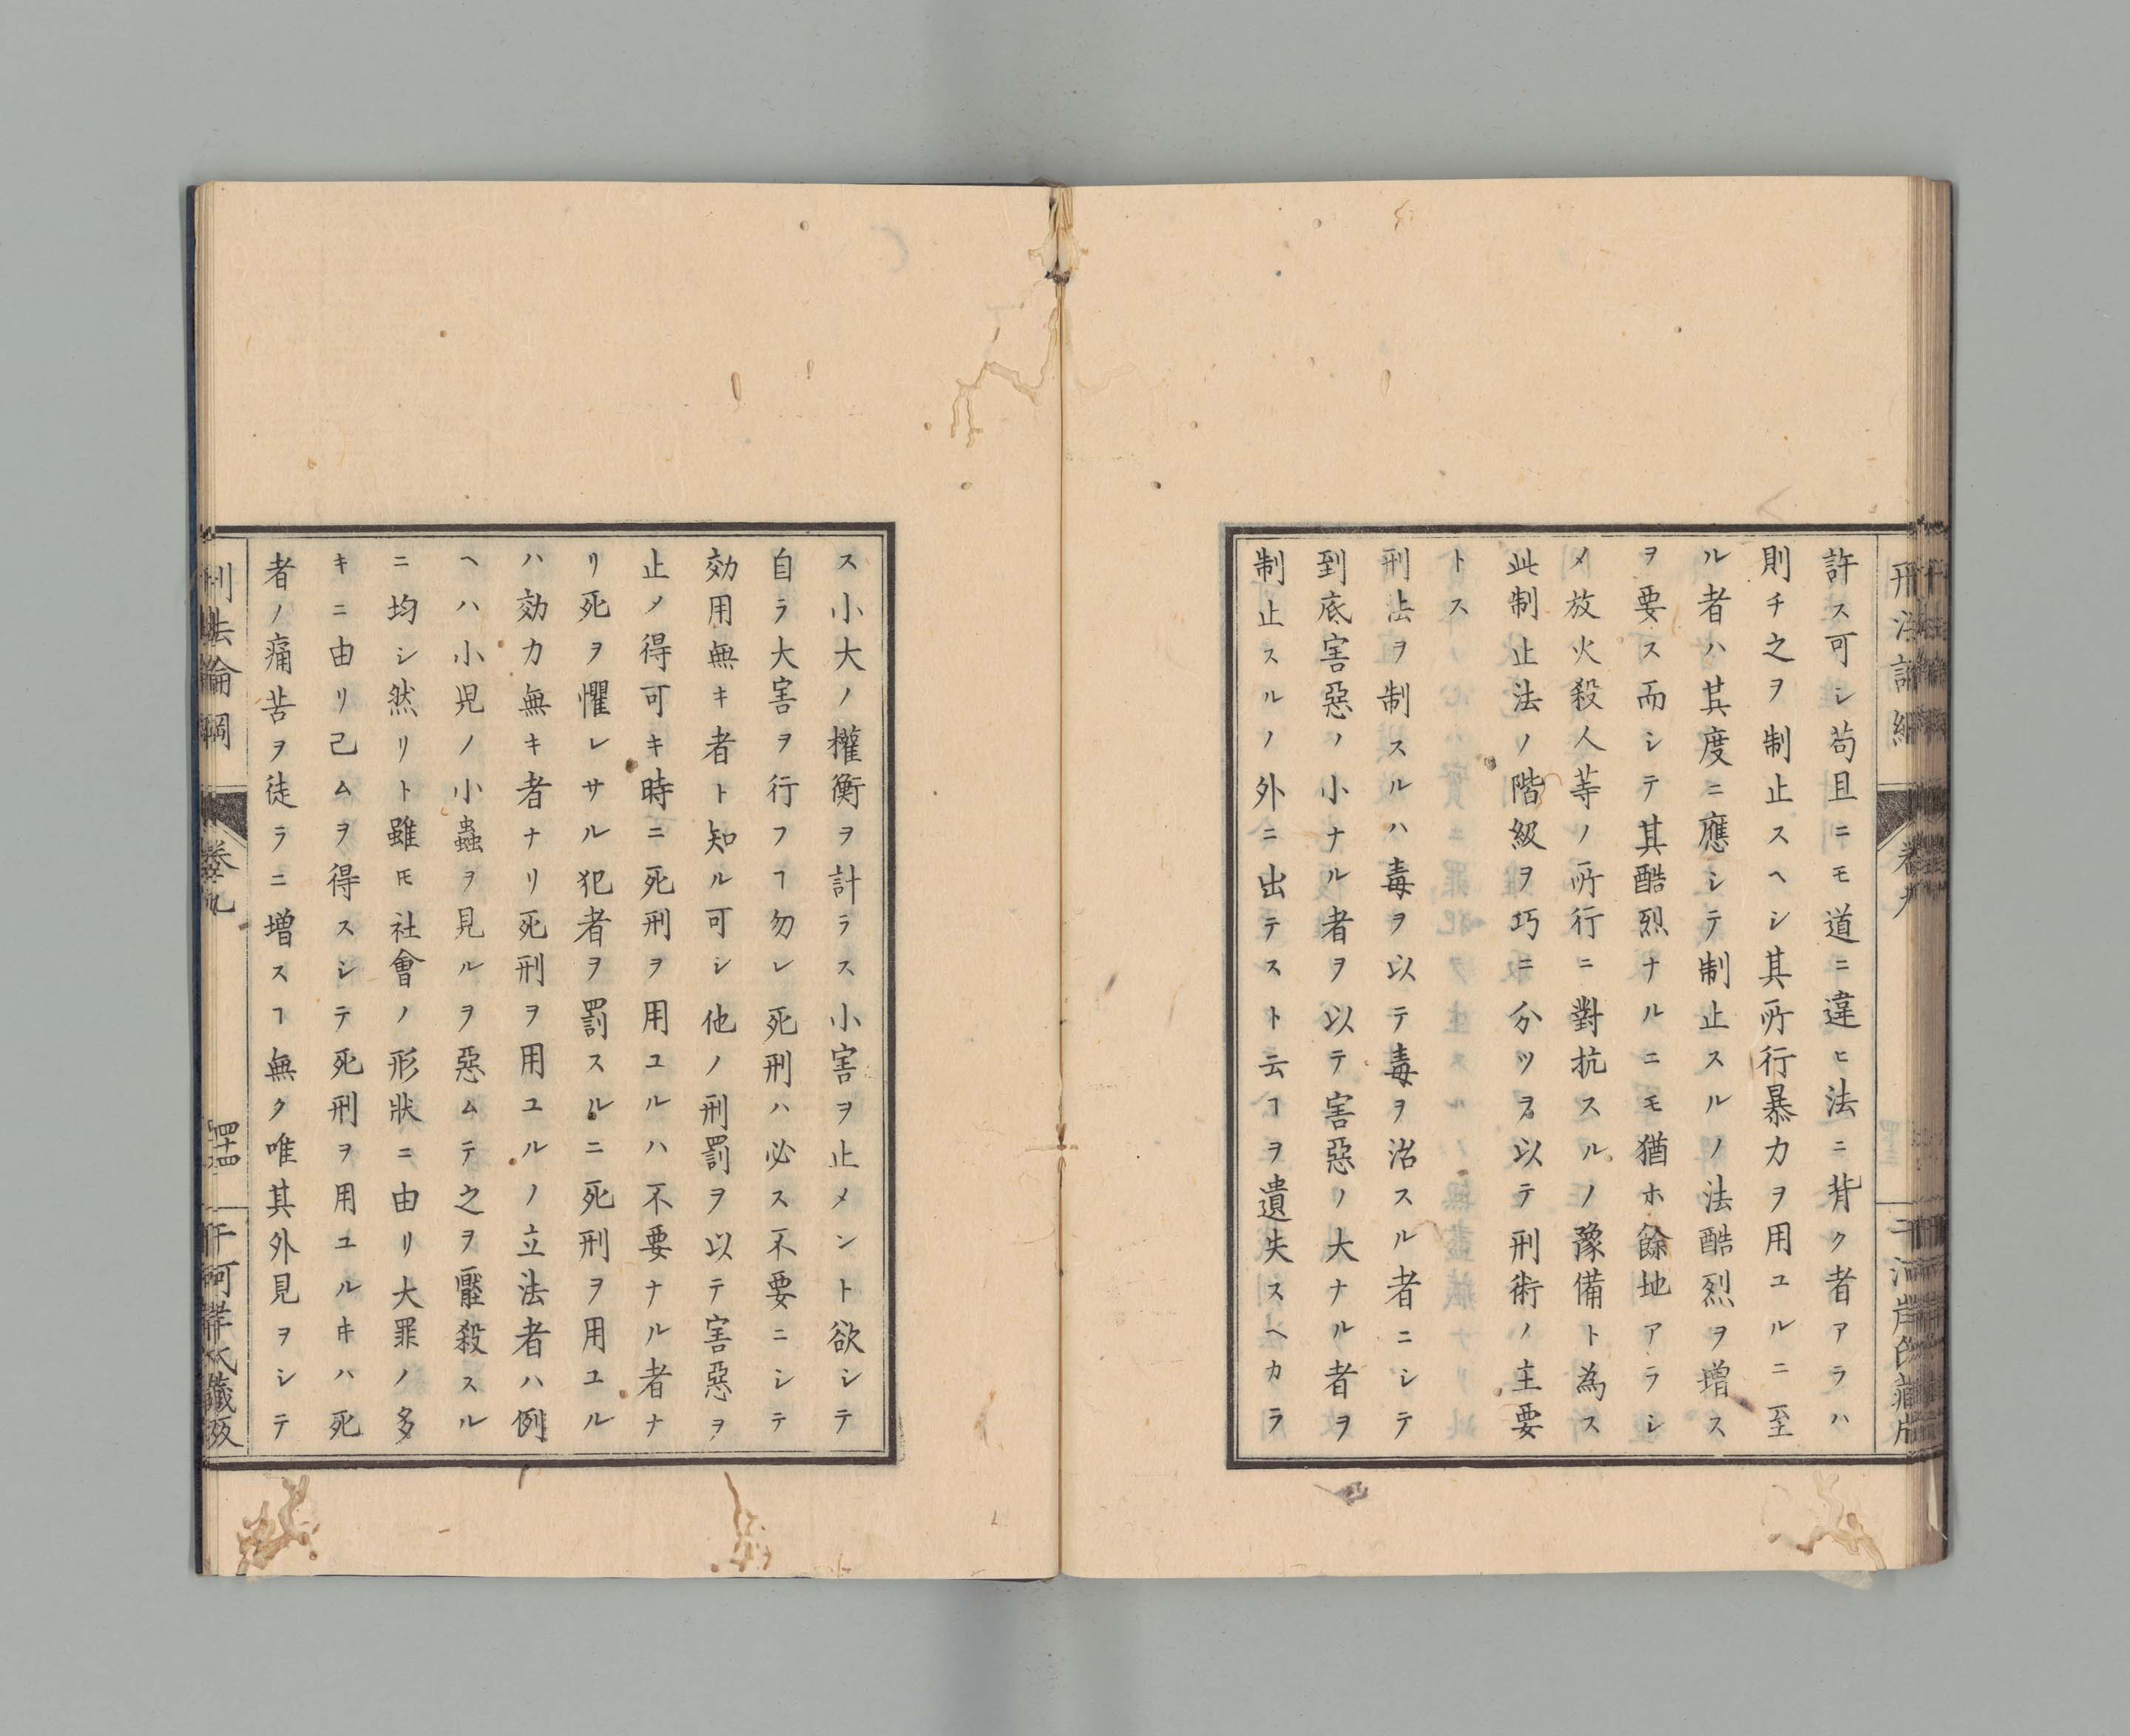 許ス可シ苟且ニモ道ニ違ヒ法ニ背ク者アラハ
則チ之ヲ制止スヘシ其所行暴力ヲ用ユルニ至
ル者ハ其度ニ應シテ制止スルノ法酷烈ヲ増ス
ヲ要ス而シテ其酷烈ナルニモ猶ホ餘地アラシ
メ放火殺人等ノ所行ニ對抗スルノ豫備ト為ス
此制止法ノ階級ヲ巧ニ分ツヲ以テ刑術ノ主要
トス
刑法ヲ制スルハ毒ヲ以テ毒ヲ治スル者ニシテ
到底害惡ノ小ナル者ヲ以テ害惡ノ大ナル者ヲ
制止スルノ外ニ出テスト云ヿヲ遺失スヘカラ
ス小大ノ權衡ヲ計ラス小害ヲ止メント欲シテ
自ラ大害ヲ行フヿ勿レ死刑ハ必ス不要ニシテ
効用無キ者ト知ル可シ他ノ刑罰ヲ以テ害惡ヲ
止メ得可キ時ニ死刑ヲ用ユルハ不要ナル者ナ
リ死ヲ懼レサル犯者ヲ罰スルニ死刑ヲ用ユル
ハ効力無キ者ナリ死刑ヲ用ユルノ立法者ハ例
ヘハ小児ノ小蟲ヲ見ルヲ惡ムテ之ヲ壓殺スル
ニ均シ然リト雖モ社會ノ形狀ニ由リ大罪ノ多
キニ由リ己ムヲ得スシテ死刑ヲ用ユルキハ死
者ノ痛苦ヲ徒ラニ増スヿ無ク唯其外見ヲシテ
刑法論綱
卷九
四十四